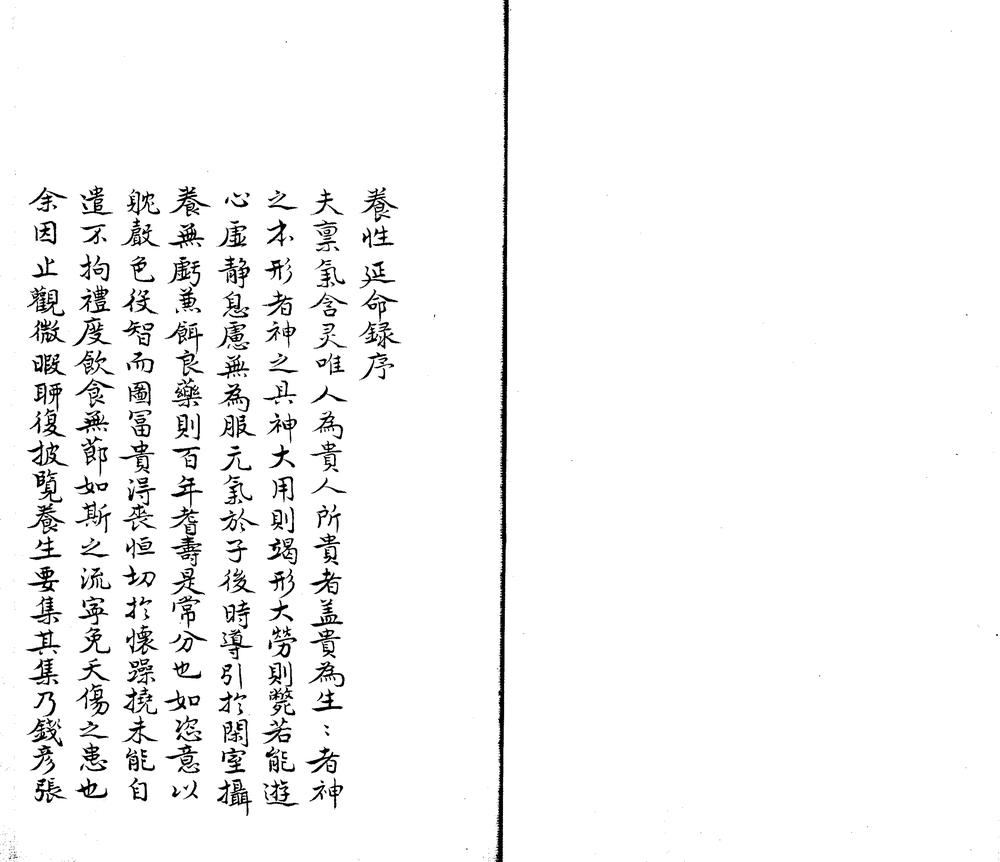 養性延命録序
夫禀氣含灵唯人為貴人所貴者盖貴為生〻者神
之本形者神之具神大用則竭形大勞則斃若能遊
心虛静息慮無為服元氣於子後時導引扵閑室攝
養無虧兼餌良藥則百年耆壽是常分也如恣意以
耽聲色役智而圖冨貴淂喪恒切扵懷躁撓未能自
遣不拘禮度飲食無節如斯之流寜免夭傷之患也
余因止觀微暇聊復披覽養生要集其集乃錢彦張